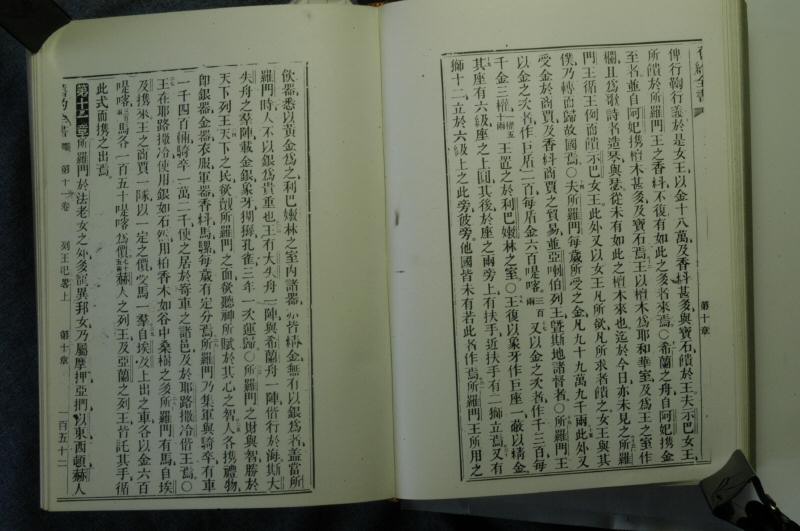 俾行鞫行義於是女王以金十八萬及香料甚多與寶石饋於王夫示巴女王
所饋於所羅門王之香料不復有如此之多者來焉○希蘭之舟自阿妃携金
至者並自阿妃携檀木甚多及寶石焉王以檀木爲耶和華室及爲王之室作
欄且爲歌詩者造琴與瑟從未有如此之檀木來也迄於今日亦未見之所羅
門王循王例而饋示巴女王此外又以女王凡所欲凡所求者饋之女王與其
僕乃轉而歸故國焉○夫所羅門每歲所受之金凡九十九萬九千兩此外又
受金於商賈及香料商賈之貿易並亞喇伯列王曁斯地諸督者○所羅門王
以金之次者作巨盾二百每盾金六百㖷喀又以金之次者作干三百每
干金三權王置之於利巴嫩林之室○王復以象牙作巨座一蔽以精金
其座有六級座之上圓其後於座之兩旁上有扶手近扶手有二獅立焉又有
獅十二立於六級上之此旁彼旁他國皆未有若此者作焉所羅門王所用之
第十章
飲器悉以黃金爲之利巴嫩林之室內諸器亦皆精金無有以銀爲者蓋當所
羅門時人不以銀爲貴重也王有大失舟一陣與希蘭舟一陣偕行於海斯大
失舟之羣陣載金銀象牙猢猻孔雀三年一次運歸○所羅門之財與智勝於
天下列王天下之民欲覿所羅門之面欲聽神所賦於其心之智人各携禮物
卽銀器金器衣服軍器香料馬騾每歲有定分焉所羅門乃集軍與騎卒有車
一千四百輛騎卒一萬二千使之居於寄車之諸邑及於耶路撒冷偕王焉○
王在耶路撒冷使用銀如石然用柏香木如谷中桑樹之多所羅門有馬自埃
及携來王之商賈一隊以一定之價受馬一羣自埃及上出之車各以金六百
㖷喀馬各一百五十㖷喀爲價赫人之列王及亞蘭之列王皆託其手循
此式而携之出焉
第十一章所羅門於法老女之外多說異邦女乃屬摩押亞捫以東西頓赫人
第十一卷 列王記畧上 第十章 一百五十二